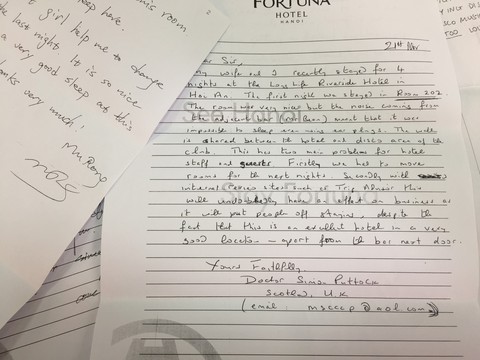 this room
sleep here.
girl help me to change
last night. It is so nice
a very good sleep at this
very much!
FORTUNA
HOTEL
HANOI
21st
Sir,
My wife and I recently stayed for 4
nights at the Long Life Riverside Hotel in
Hoi An. The first night we stayed in Room 202
The room was very nice but the noise coming from
the adjacent bar meant that it was
impossible to sleep even using ear plugs. The wall
is shared between the hotel and disco area of the
club. This has two main problems for hotel
staff and guests. Firstly we had to move
rooms for the next nights. Secondly with
internet sites such as Trip Advisor this
will undoubtedly have an effect on business as
it will put people off staying, despite the
fact that this is an excellent hotel in a very
good location - apart from the bar next door.
Yours Faithfully,
Doctor Simon Puttock
Scotland, U.K
(email: @aol.com)
DISCO
TOO